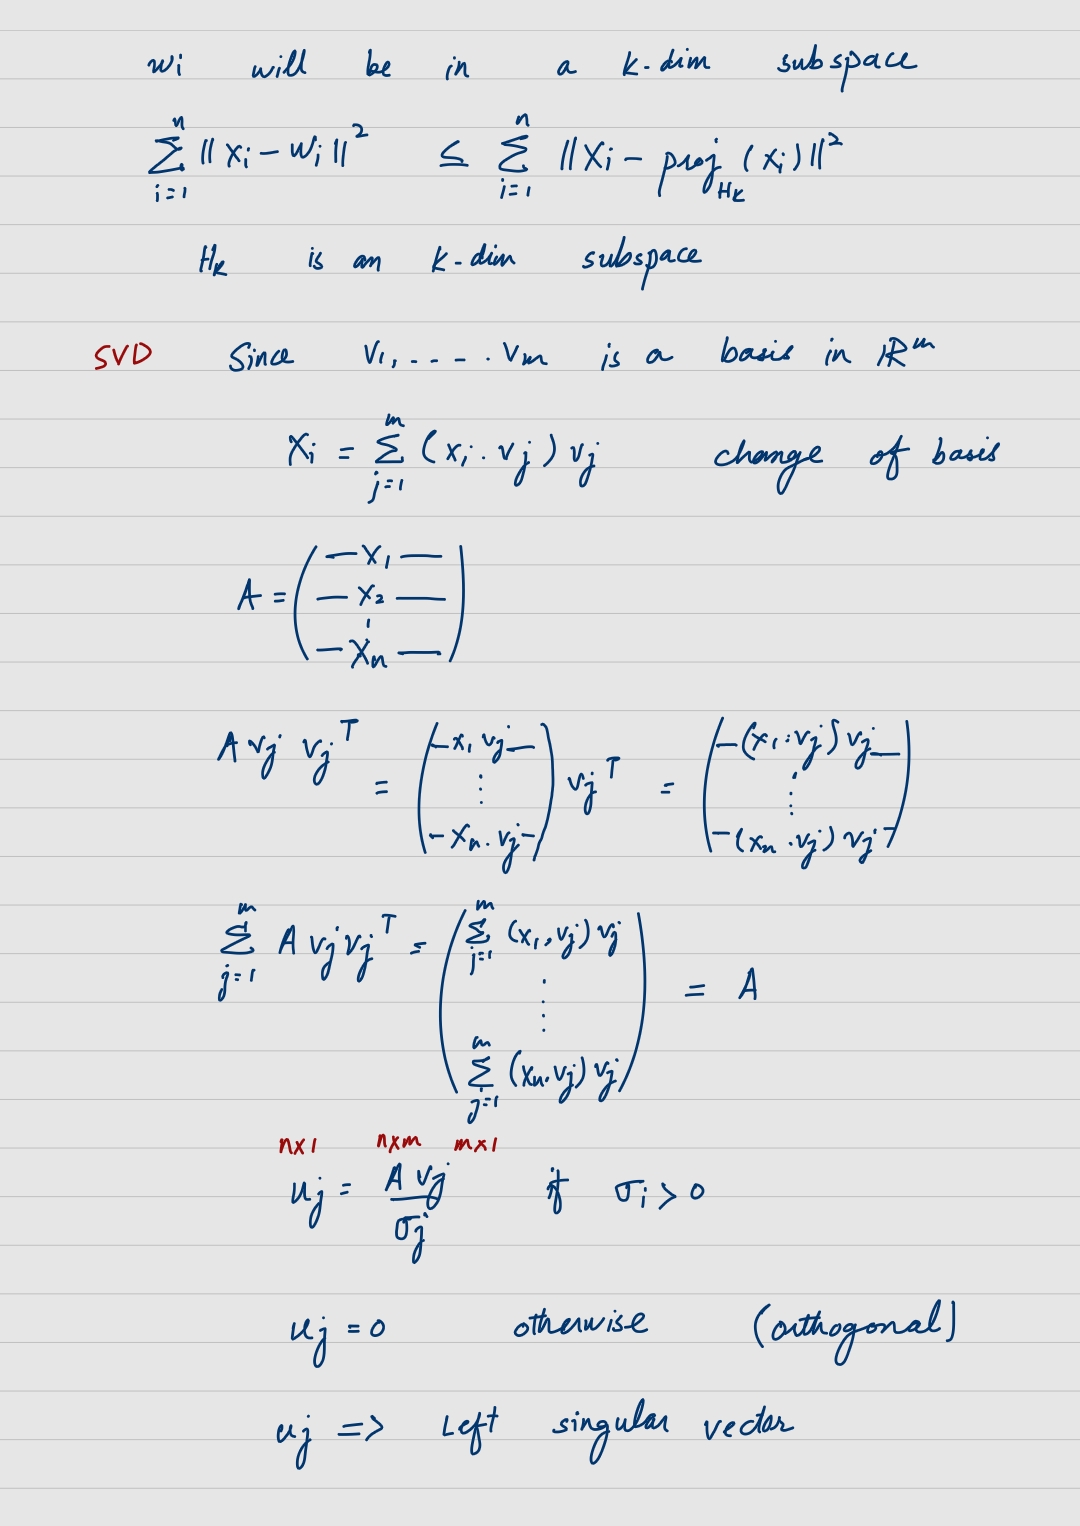 wi will be in a k-dim subspace
∑_{i=1}^{n} ||xi − wi||² ≤ ∑_{i=1}^{n} ||xi − proj_{Hk}(xi)||²
Hk is an k-dim subspace
SVD Since v1, ..... vm is a basis in ℝ^m
xi = ∑_{j=1}^{m} (xi · vj) vj change of basis
A = ( — x1 —
— x2 —
⋮
— xn — )
A vj vj^T = ( — x1 vj — ⋮ — xn · vj — ) vj^T = ( — (x1 · vj) vj — ⋮ — (xn · vj) vj — )
∑_{j=1}^{m} A vj vj^T = ( ∑_{j=1}^{m} (x1, vj) vj ⋮ ∑_{j=1}^{m} (xn · vj) vj ) = A
nx1 nxm mx1
uj = A vj / σj if σi > 0
uj = 0 otherwise (orthogonal)
uj => Left singular vector